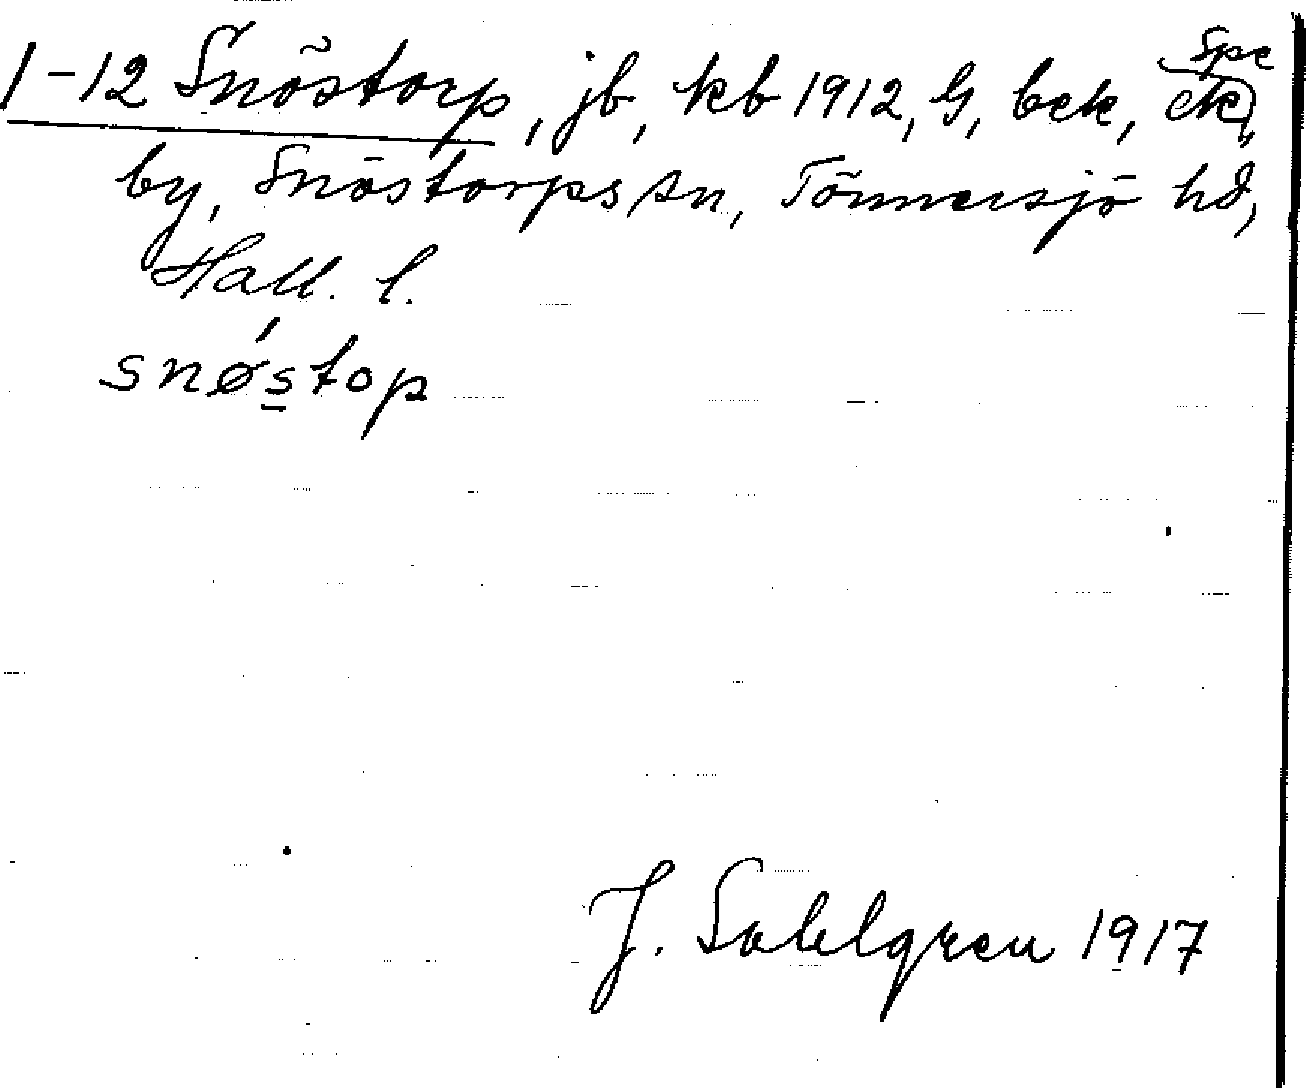 1-12 Snöstorp, jb, kb 1912, G, bek, ek, Spe
by, Snöstorps sn, Tönnersjö hd,
Hall. l.
snø´s̲top
J. Sahlgren 1917